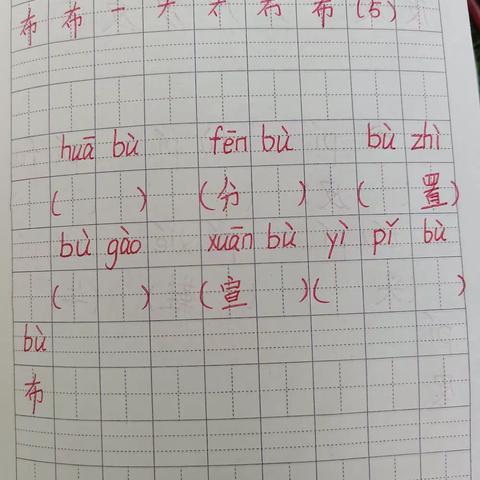 布 布 一 ナ 布 布 (5)
huā bù fēn bù bù zhì
( ) (分 ) ( 置)
bù gào xuān bù yì pǐ bù
( ) (宣 ) ( )
bù
布